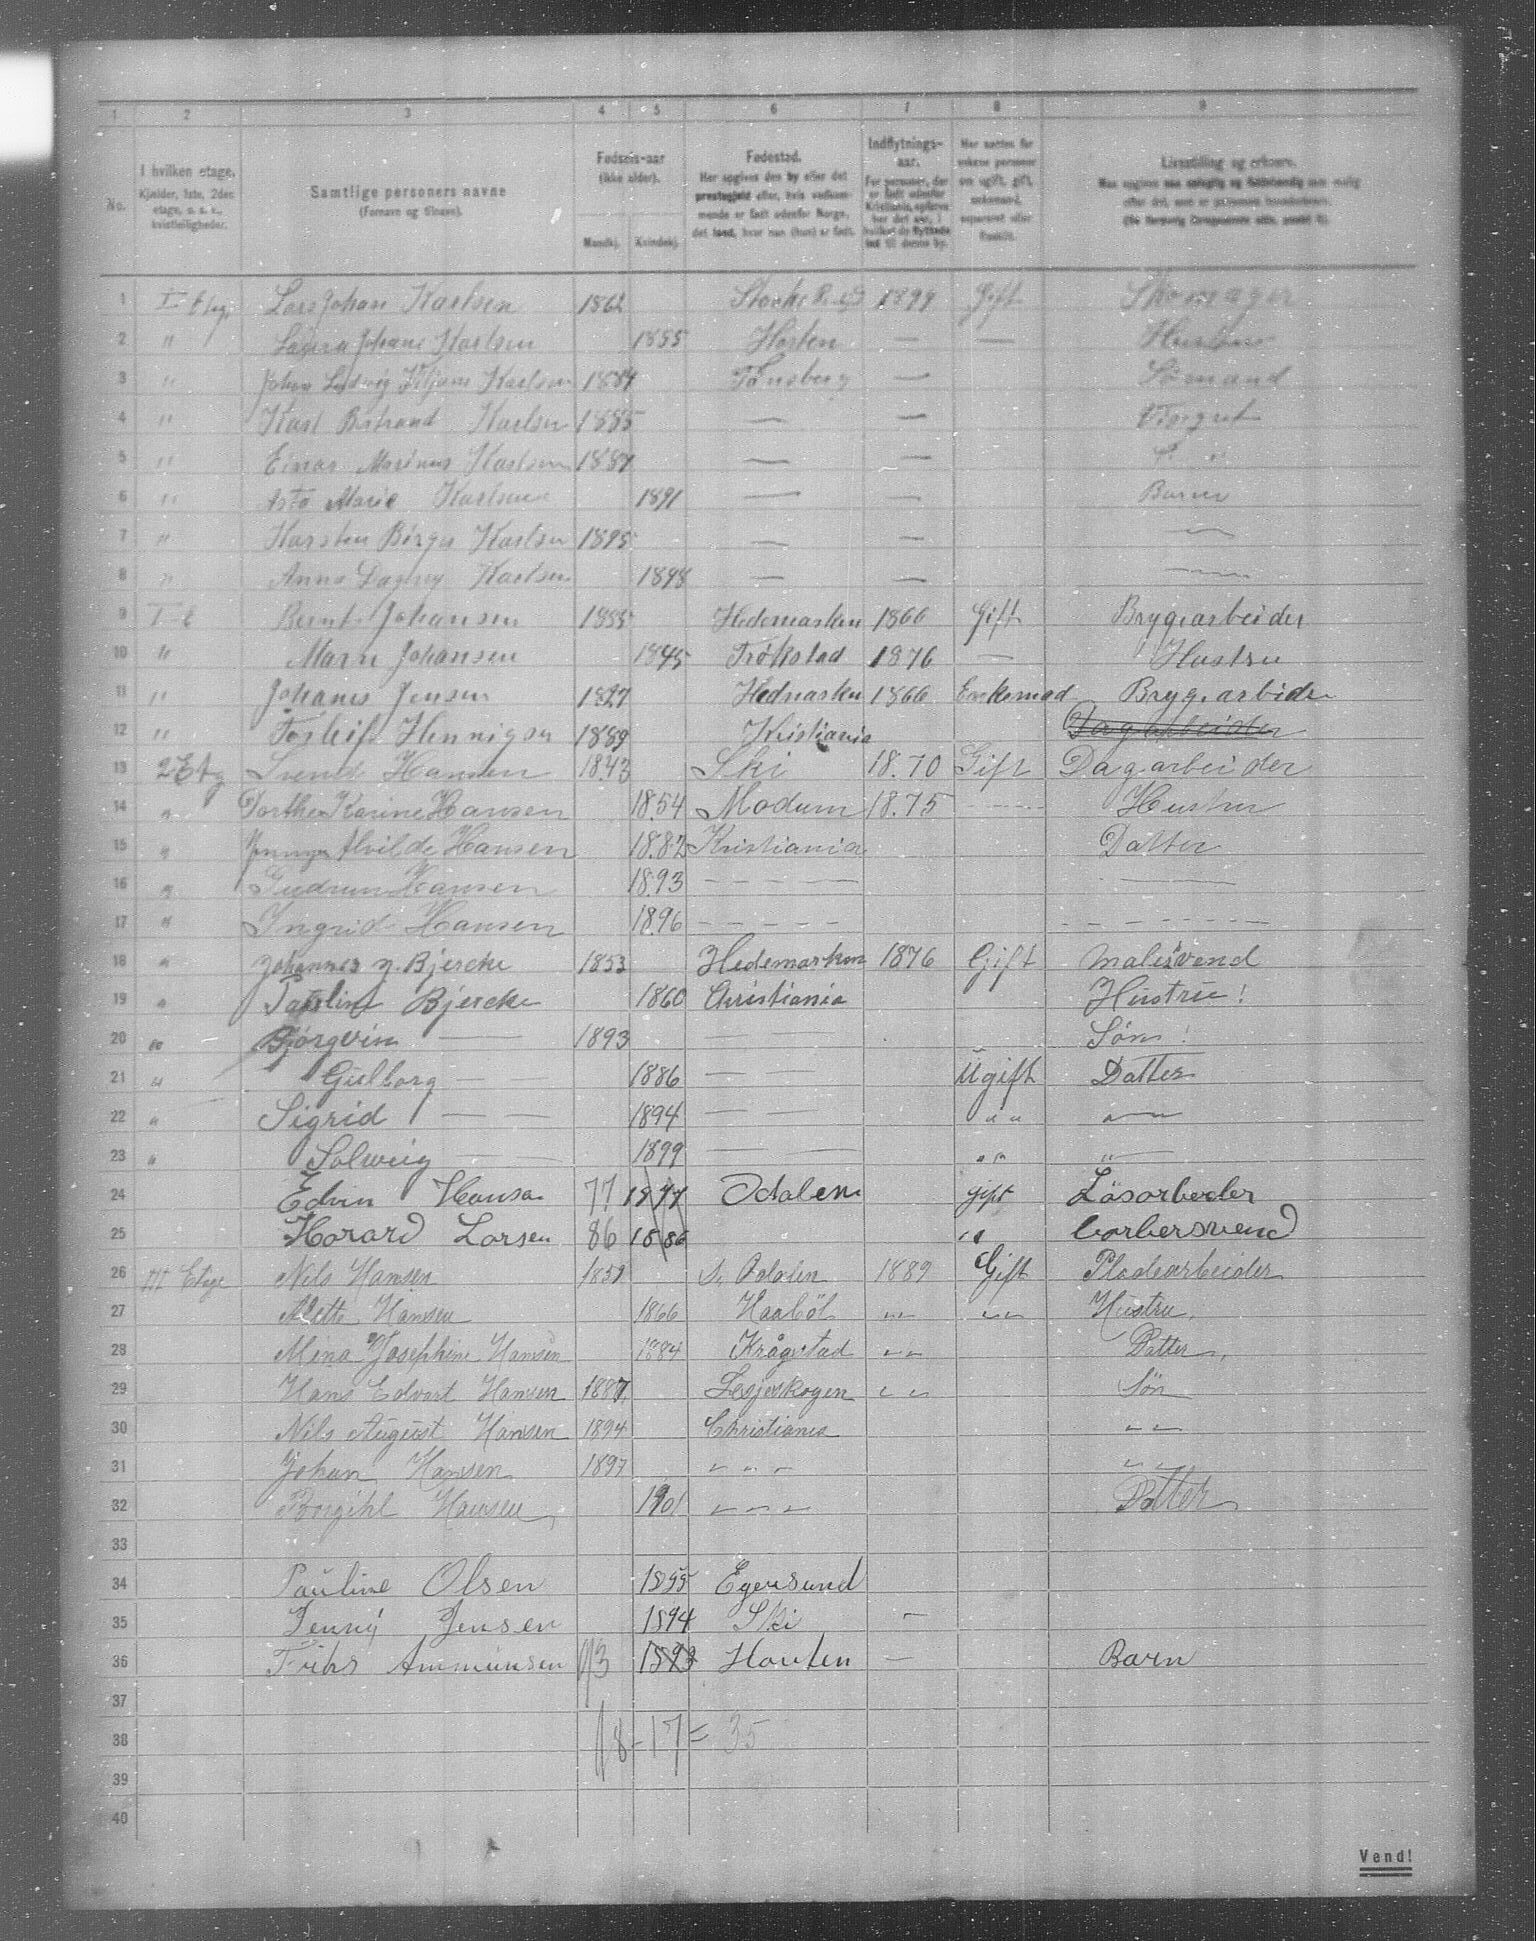 1 2 3 4 5 6 7 8 9
No. I hvilken etage. Kjælder, 1ste, 2den etage, o. s. v., kvistleiligheder. Samtlige personers navne (Fornavn og tilnavn). Fødsels-aar (ikke alder). Mandkj. Kvindekj. Fødested. Her opgives den by eller det præstegjeld eller, hvis vedkommende er født udenfor Norge, det land, hvor han (hun) er født. Indflytnings-aar. For personer, der er født udenfor Kristiania, opføres her det aar, i hvilket de flyttede ind til denne by. Livsstilling og erhverv.
1 I Etg. Lars Johan Karlsen 1862 1899 Gift Skomager
2 " Laura Johane Karlsen 1855 Horten — — Hustru
3 " Johan Ludvig Karlsen 1884 Tønsberg — Sømand
4 " Karl Karlsen 1885 — —
5 " Einar Marinus Karlsen 1887 — —
6 " Asta Marie Karlsen 1891 — — Barn
7 " Karsten Birger Karlsen 1895 — — —
8 " Anna Dagny Karlsen 1898 — — —
9 Bernt Johansen 1855 Hedemarken 1866 Gift Brygearbeider
10 " Marn Johansen 1845 Trøkstad 1876 — Hustru
11 " Johanes Jensen 1827 Hedmarken 1866 Enkemad Bryg.arbeide
12 " Torleif Hennigsen 1889 Kristiania Dagarbeider
13 2 Etg Svend Hansen 1843 Ski 18.70 Gift Dagarbeider
14 " Dorthea Karine Hansen 18.54 Modum 18.75 ----- Hustru
15 " Alvilde Hansen 18.82 Kristiania Datter
16 " Gudrun Hansen 18.93 — — — — ———
17 " Ingrid Hansen 18.96 — — — — — — — —
18 " Johannes N. Bjercke 1853 Hedemarken 1876 Gift Malersvend
19 " Pauline Bjercke 1860 Christiania Hustru!
20 " Bjørgvin —— 1893 Søn!
21 " Gudborg — — 1886 — — Ugift Datter
22 " Sigrid — — 1894 — — " " —
23 " Solveig — — 1899 — — " " "
24 Edvin Hansen 77 1877 Odalen gift Løsarbeder
25 Harard Larsen 86 1886 " barbersvend
26 III Etage Nils Hansen S. Odalen 1889 Gift Pladearbeider
27 Hansen 1866 Haabøl " " Hustru.
28 Mina Josephine Hansen 1884 Krågstad " Datter,
29 Hans Edvart Hansen 1887 Lesjeskogen " " Søn
30 Nils August Hansen 1894 Christiania " "
31 Johan Hansen 1897 " " " " "
32 Borgihl Hansen 1901 " " " Datter
33
34 Pauline Olsen 1895 Egersund
35 Jenny Jensen 1894 Ski —
36 Amundsen 93 1893 — Barn
37
38 18-17=35
39
40
Vend!